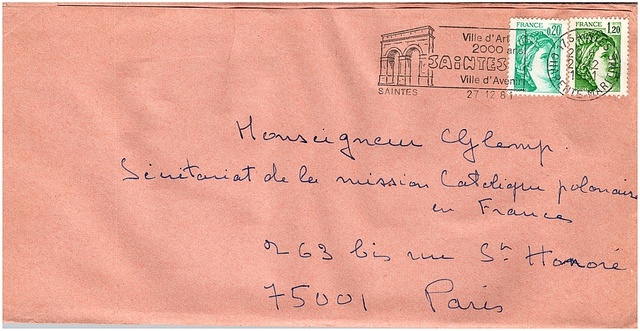 Ville d'Art
2000 ans
SAINTES
Ville d'Aveni
SAINTES
27 12 81
FRANCE 0,20
FRANCE 1,20
Monseigneur Glemp.
Sécrétariat de la mission Catolique polonaise
en France
263 bis rue St Honoré
75001 Paris